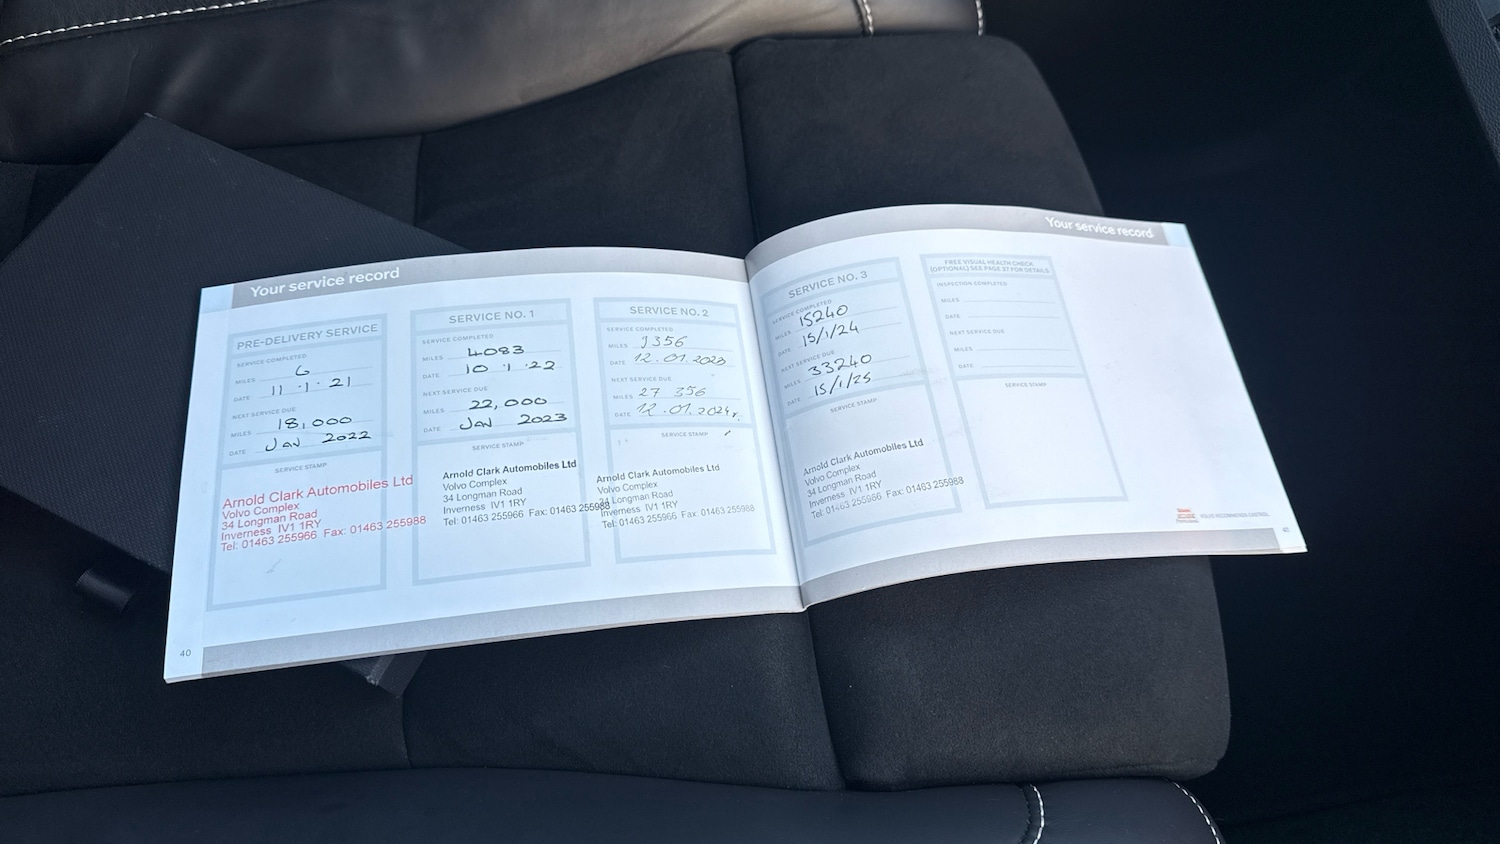 Your service record
PRE-DELIVERY SERVICE
SERVICE COMPLETED
MILES 6
DATE 11·1·21
NEXT SERVICE DUE
MILES 18,000
DATE JAN 2022
SERVICE STAMP
Arnold Clark Automobiles Ltd
Volvo Complex
34 Longman Road
Inverness IV1 1RY
Tel: 01463 255966 Fax: 01463 255988
SERVICE NO. 1
SERVICE COMPLETED
MILES 4083
DATE 10·1·22
NEXT SERVICE DUE
MILES 22,000
DATE JAN 2023
SERVICE STAMP
Arnold Clark Automobiles Ltd
Volvo Complex
34 Longman Road
Inverness IV1 1RY
Tel: 01463 255966 Fax: 01463 255988
SERVICE NO. 2
SERVICE COMPLETED
MILES 9356
DATE 12.01.2023
NEXT SERVICE DUE
MILES 27 356
DATE 12.01.2024r.
SERVICE STAMP
Arnold Clark Automobiles Ltd
Volvo Complex
34 Longman Road
Inverness IV1 1RY
Tel: 01463 255966 Fax: 01463 255988
40
Your service record
SERVICE NO. 3
SERVICE COMPLETED
MILES 15240
DATE 15/1/24
NEXT SERVICE DUE
MILES 33240
DATE 15/1/25
SERVICE STAMP
Arnold Clark Automobiles Ltd
Volvo Complex
34 Longman Road
Inverness IV1 1RY
Tel: 01463 255966 Fax: 01463 255988
FREE VISUAL HEALTH CHECK
(OPTIONAL) SEE PAGE 37 FOR DETAILS.
INSPECTION COMPLETED
MILES
DATE
NEXT SERVICE DUE
MILES
DATE
SERVICE STAMP
VOLVO RECOMMENDS CASTROL